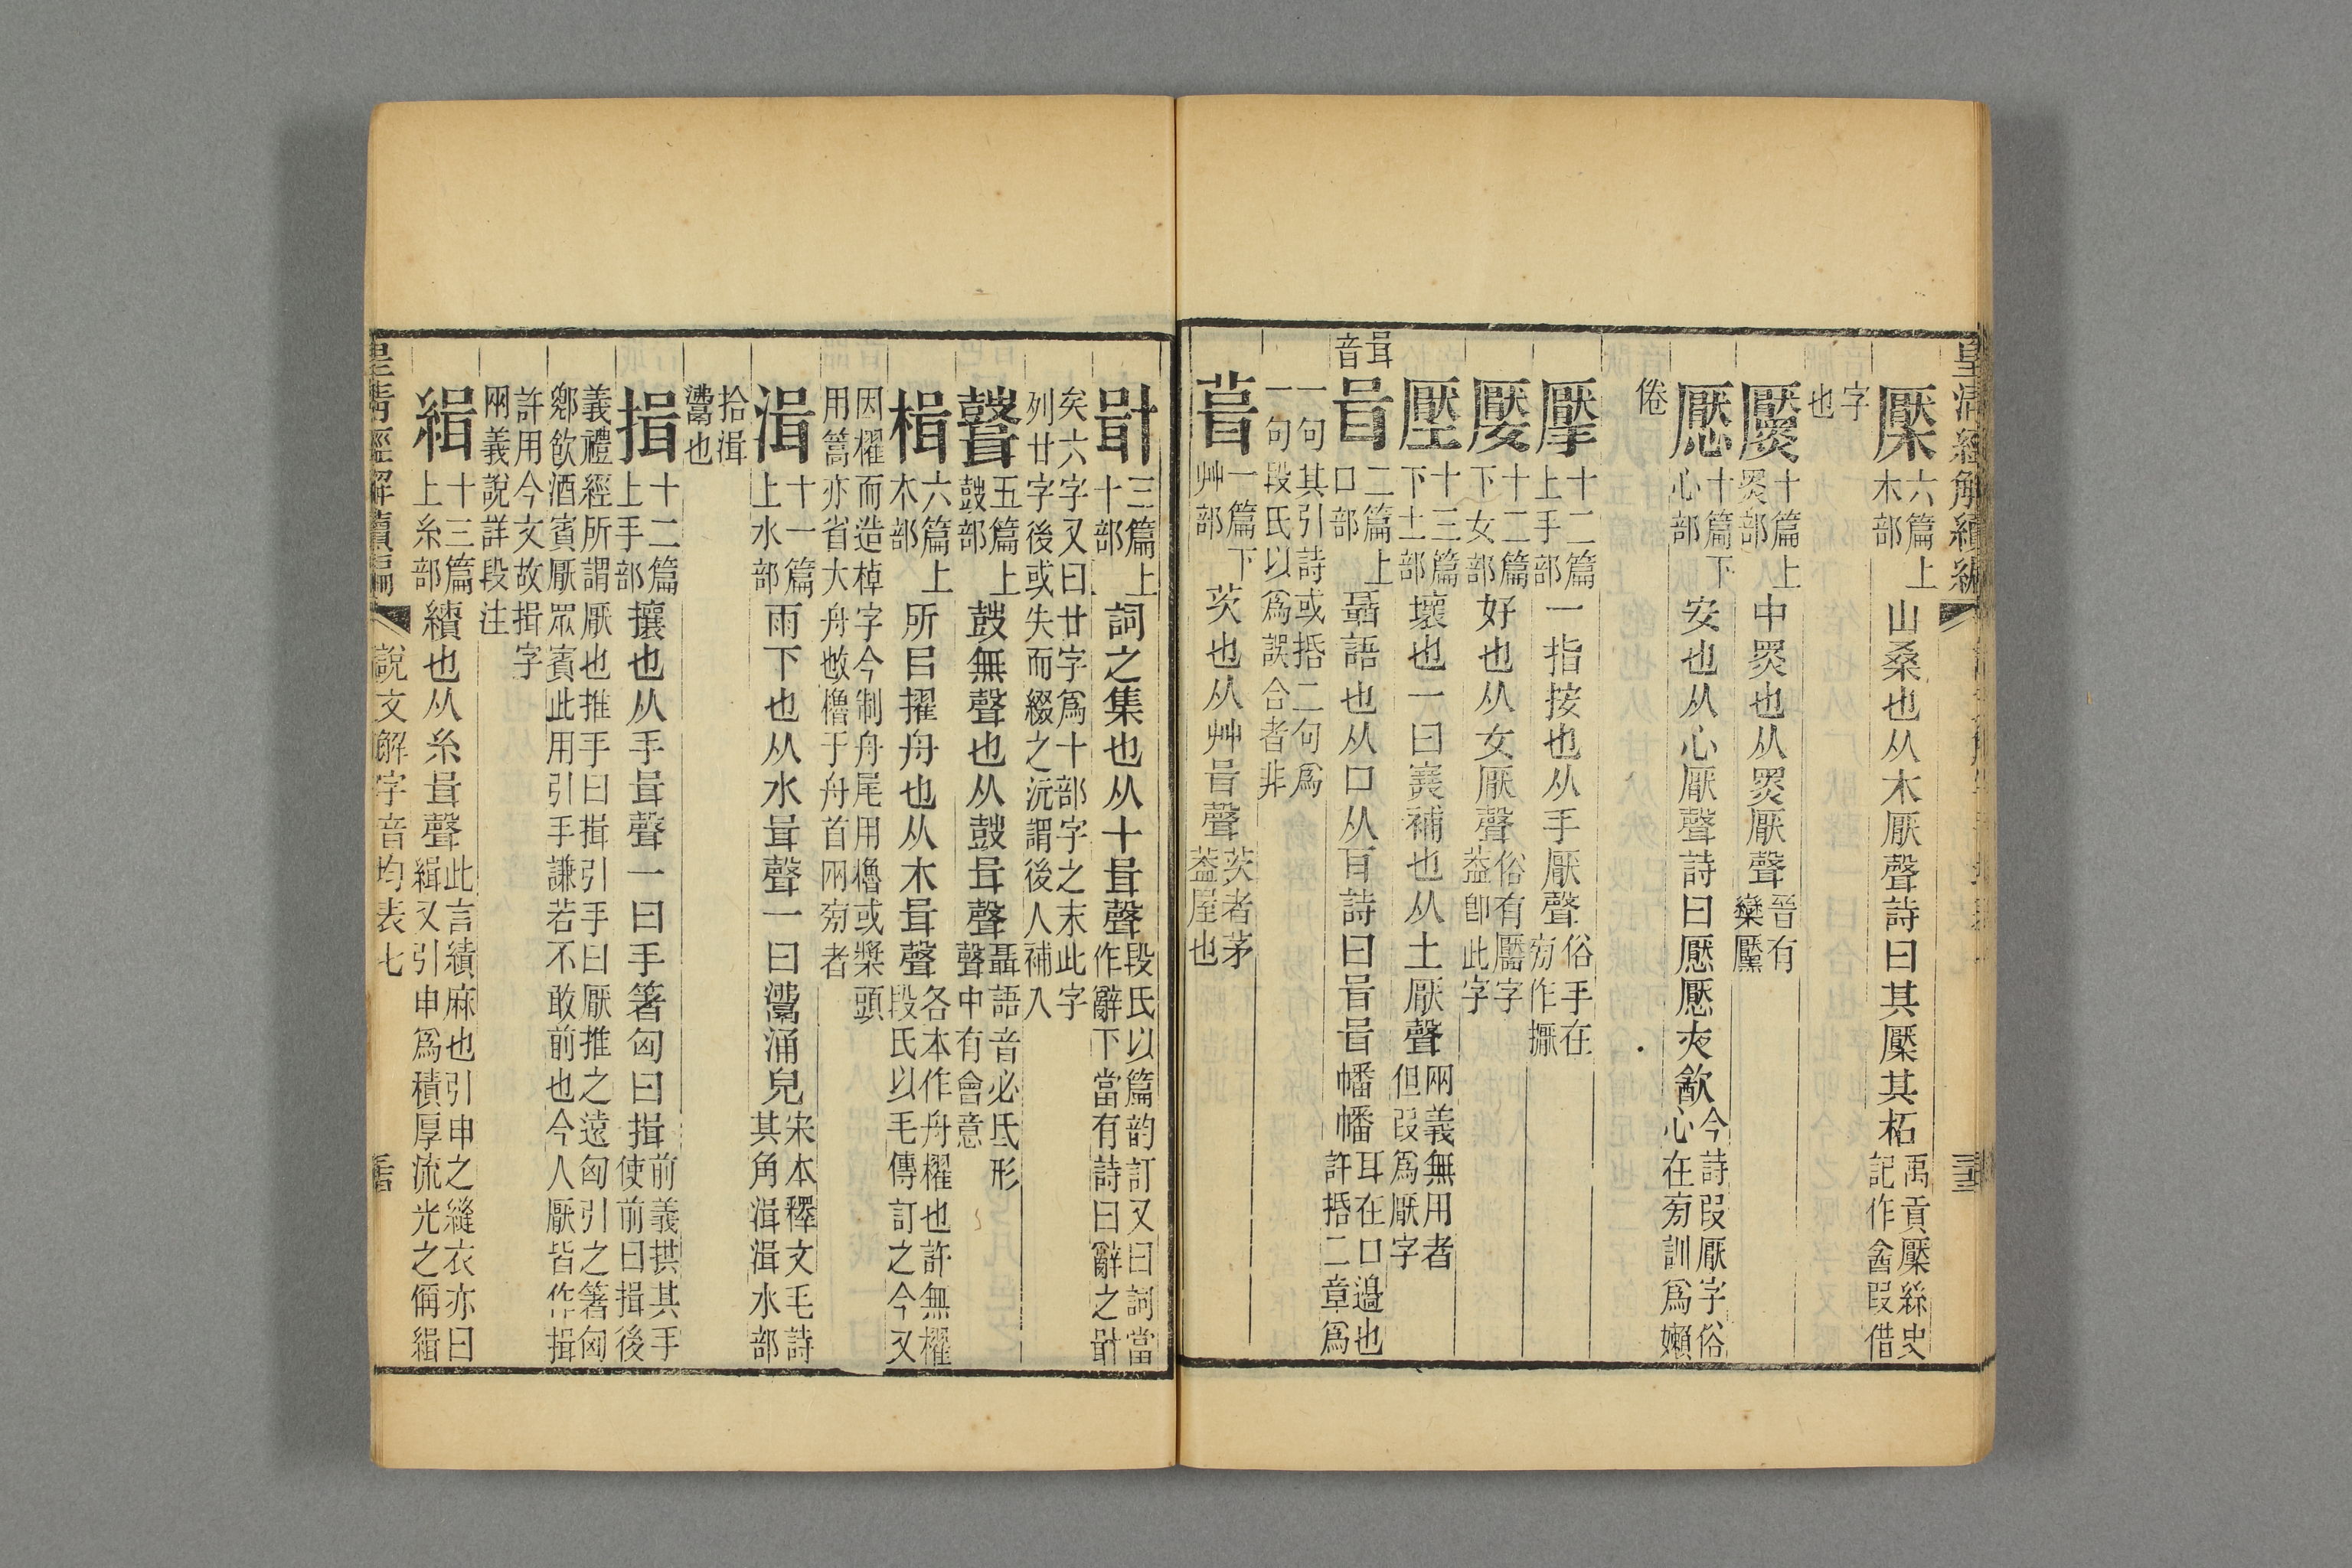 檿六篇上木部山桑也从木厭聲詩曰其檿其柘禹貢檿絲史記作酓叚借
字也
黶十篇上炎部中黑也从黑厭聲晉有欒黶
懕十篇下心部安也从心厭聲詩曰懕懕夜㱃今詩叚厭字俗心在旁訓爲嬾
倦
擪十二篇上手部一指按也从手厭聲俗手在旁作擫
嬮十二篇下女部好也从女厭聲俗有靨字葢卽此字
壓十三篇下土部壞也一曰塞補也从土厭聲兩義無用者但叚爲厭字
咠音
咠二篇上口部聶語也从口从耳詩曰咠咠幡幡耳在口邊也許捪二章爲
一句其引詩或捪二句爲一句段氏以爲誤合者非
葺一篇下艸部茨也从艸咠聲茨者茅葢屋也
卙三篇上十部詞之集也从十咠聲段氏以篇韵訂又曰詞當作辭下當有詩曰辭之卙
矣六字又曰廿字爲十部字之末此字列廿字後或失而綴之沅謂後人補入
鼘五篇上鼓部鼓無聲也从鼓咠聲聶語音必氐形聲中有會意
楫六篇上木部所㠯擢舟也从木咠聲各本作舟櫂也許無櫂段氏以毛傳訂之今又
因櫂而造棹字今制舟尾用櫓或槳頭用篙亦省大舟㪚櫓于舟首兩旁者
湒十一篇上水部雨下也从水咠聲一曰灊涌皃宋本釋文毛詩其角湒湒水部
拾湒灊也
揖十二篇上手部攘也从手咠聲一曰手箸匈曰揖前義拱其手使前曰揖後
義禮經所謂厭也推手曰揖引手曰厭推之遠匈引之箸匈鄉飮酒賓厭眾賓此用引手謙若不敢前也今人厭皆作揖
許用今文故揖字兩義說詳段注
緝十三篇上糸部績也从糸咠聲此言績麻也引申之縫衣亦曰緝又引申爲積厚流光之偁緝
皇清經解續編 說文解字音均表七